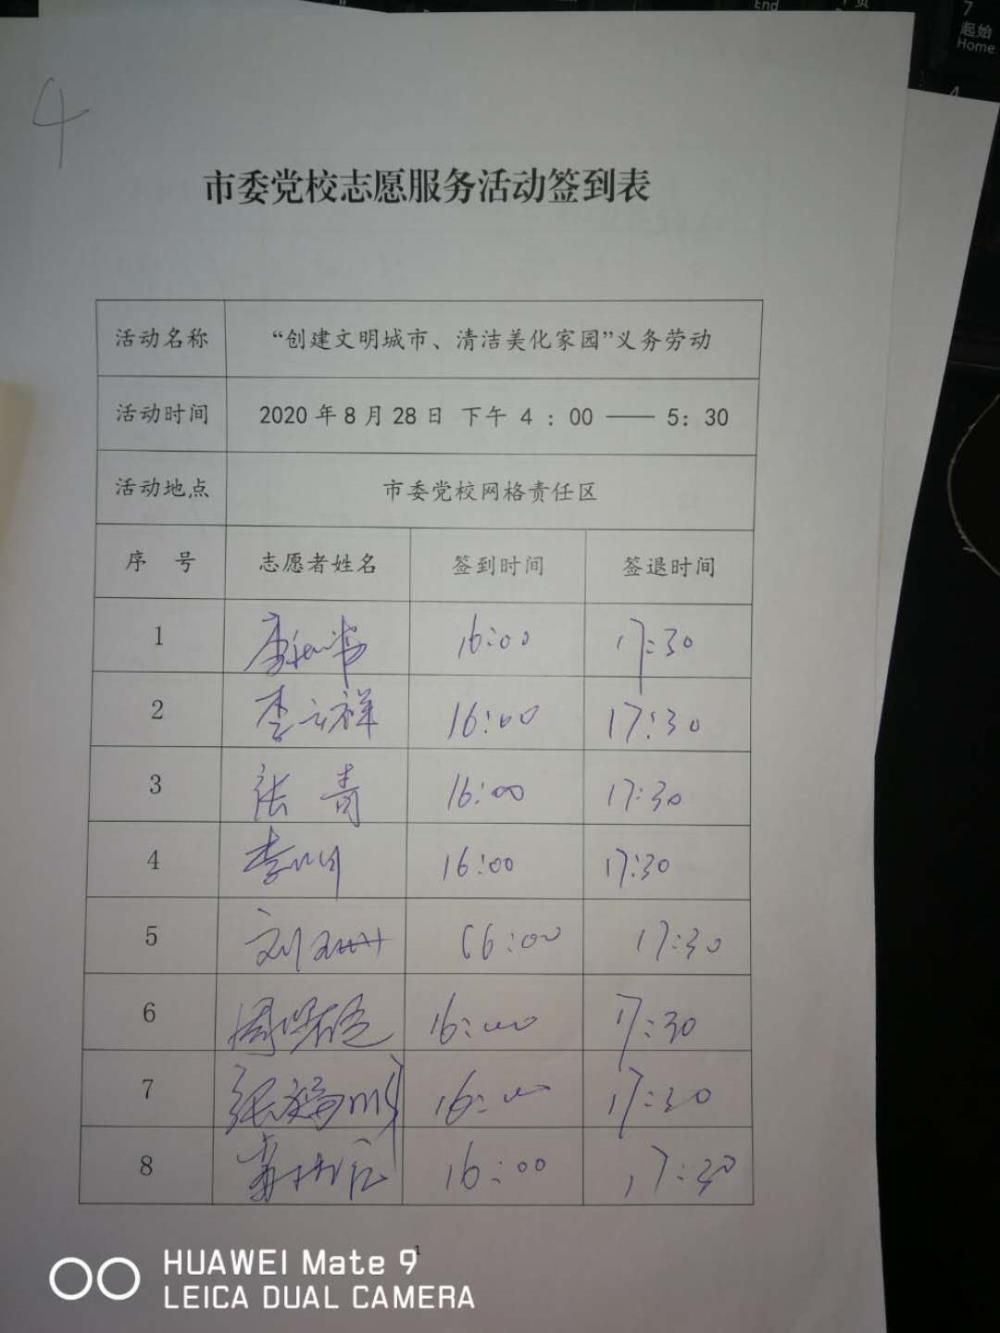 7
起始
Home
End
4
市委党校志愿服务活动签到表
活动名称 “创建文明城市、清洁美化家园”义务劳动
活动时间 2020年8月28日 下午 4 : 00 —— 5: 30
活动地点 市委党校网格责任区
序 号 志愿者姓名 签到时间 签退时间
1 16:00 17:30
2 李云祥 16:00 17:30
3 张青 16:00 17:30
4 李明 16:00 17:30
5 刘珊 16:00 17:30
6 16:00 17:30
7 16:00 17:30
8 16:00 17:30
1
HUAWEI Mate 9
LEICA DUAL CAMERA